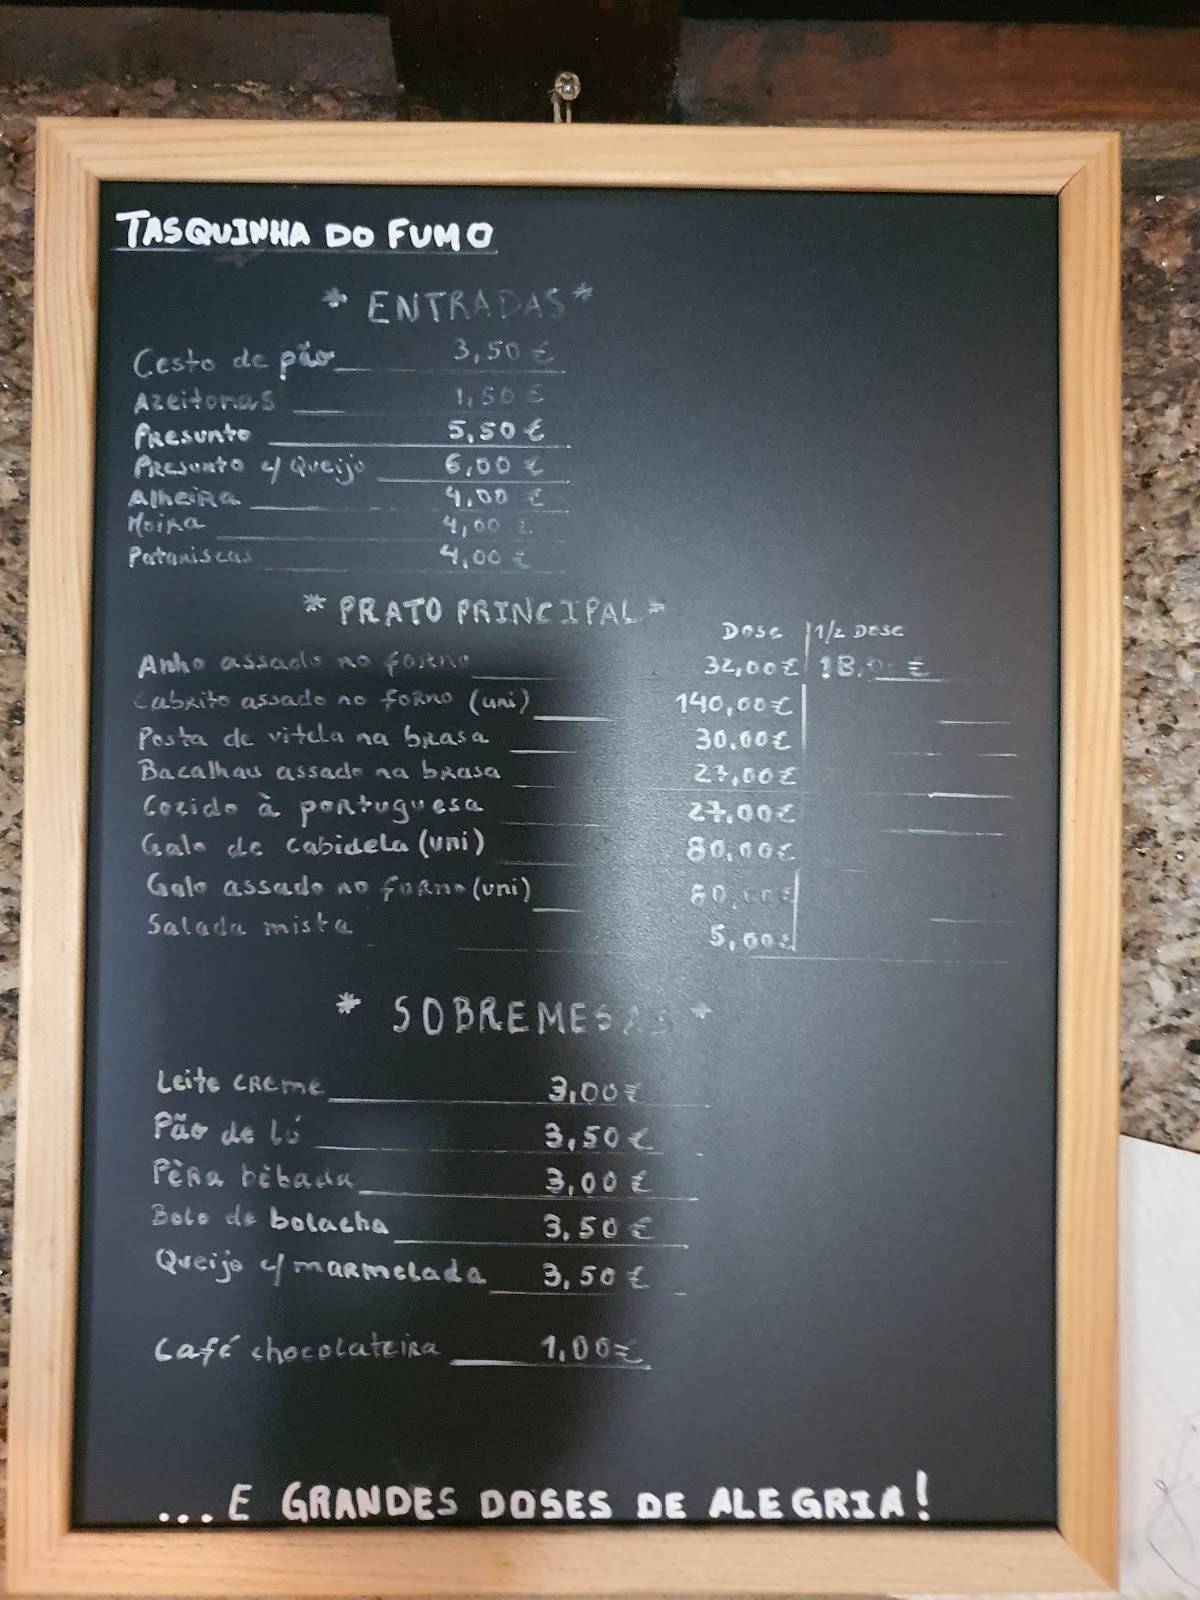 TASQUINHA DO FUMO
* ENTRADAS *
Cesto de pão 3,50 €
Azeitonas 1,50 €
Presunto 5,50 €
Presunto c/ Queijo 6,00 €
Alheira 4,00 €
Moira 4,00 €
Pataniscas 4,00 €
* PRATO PRINCIPAL *
Dose 1/2 Dose
Anho assado no forno 32,00€ 18,0 €
Cabrito assado no forno (uni) 140,00€
Posta de vitela na brasa 30,00€
Bacalhau assado na brasa
Cozido à portuguesa 27,00€
Galo de cabidela (uni) 80,00€
Galo assado no forno (uni)
Salada mista 5,00€
* SOBREMESAS *
Leite creme 3,00€
Pão de ló 3,50€
Pêra bêbada 3,00€
Bolo de bolacha 3,50€
Queijo c/ marmelada 3,50€
Café chocolateira 1,00€
... E GRANDES DOSES DE ALEGRIA!